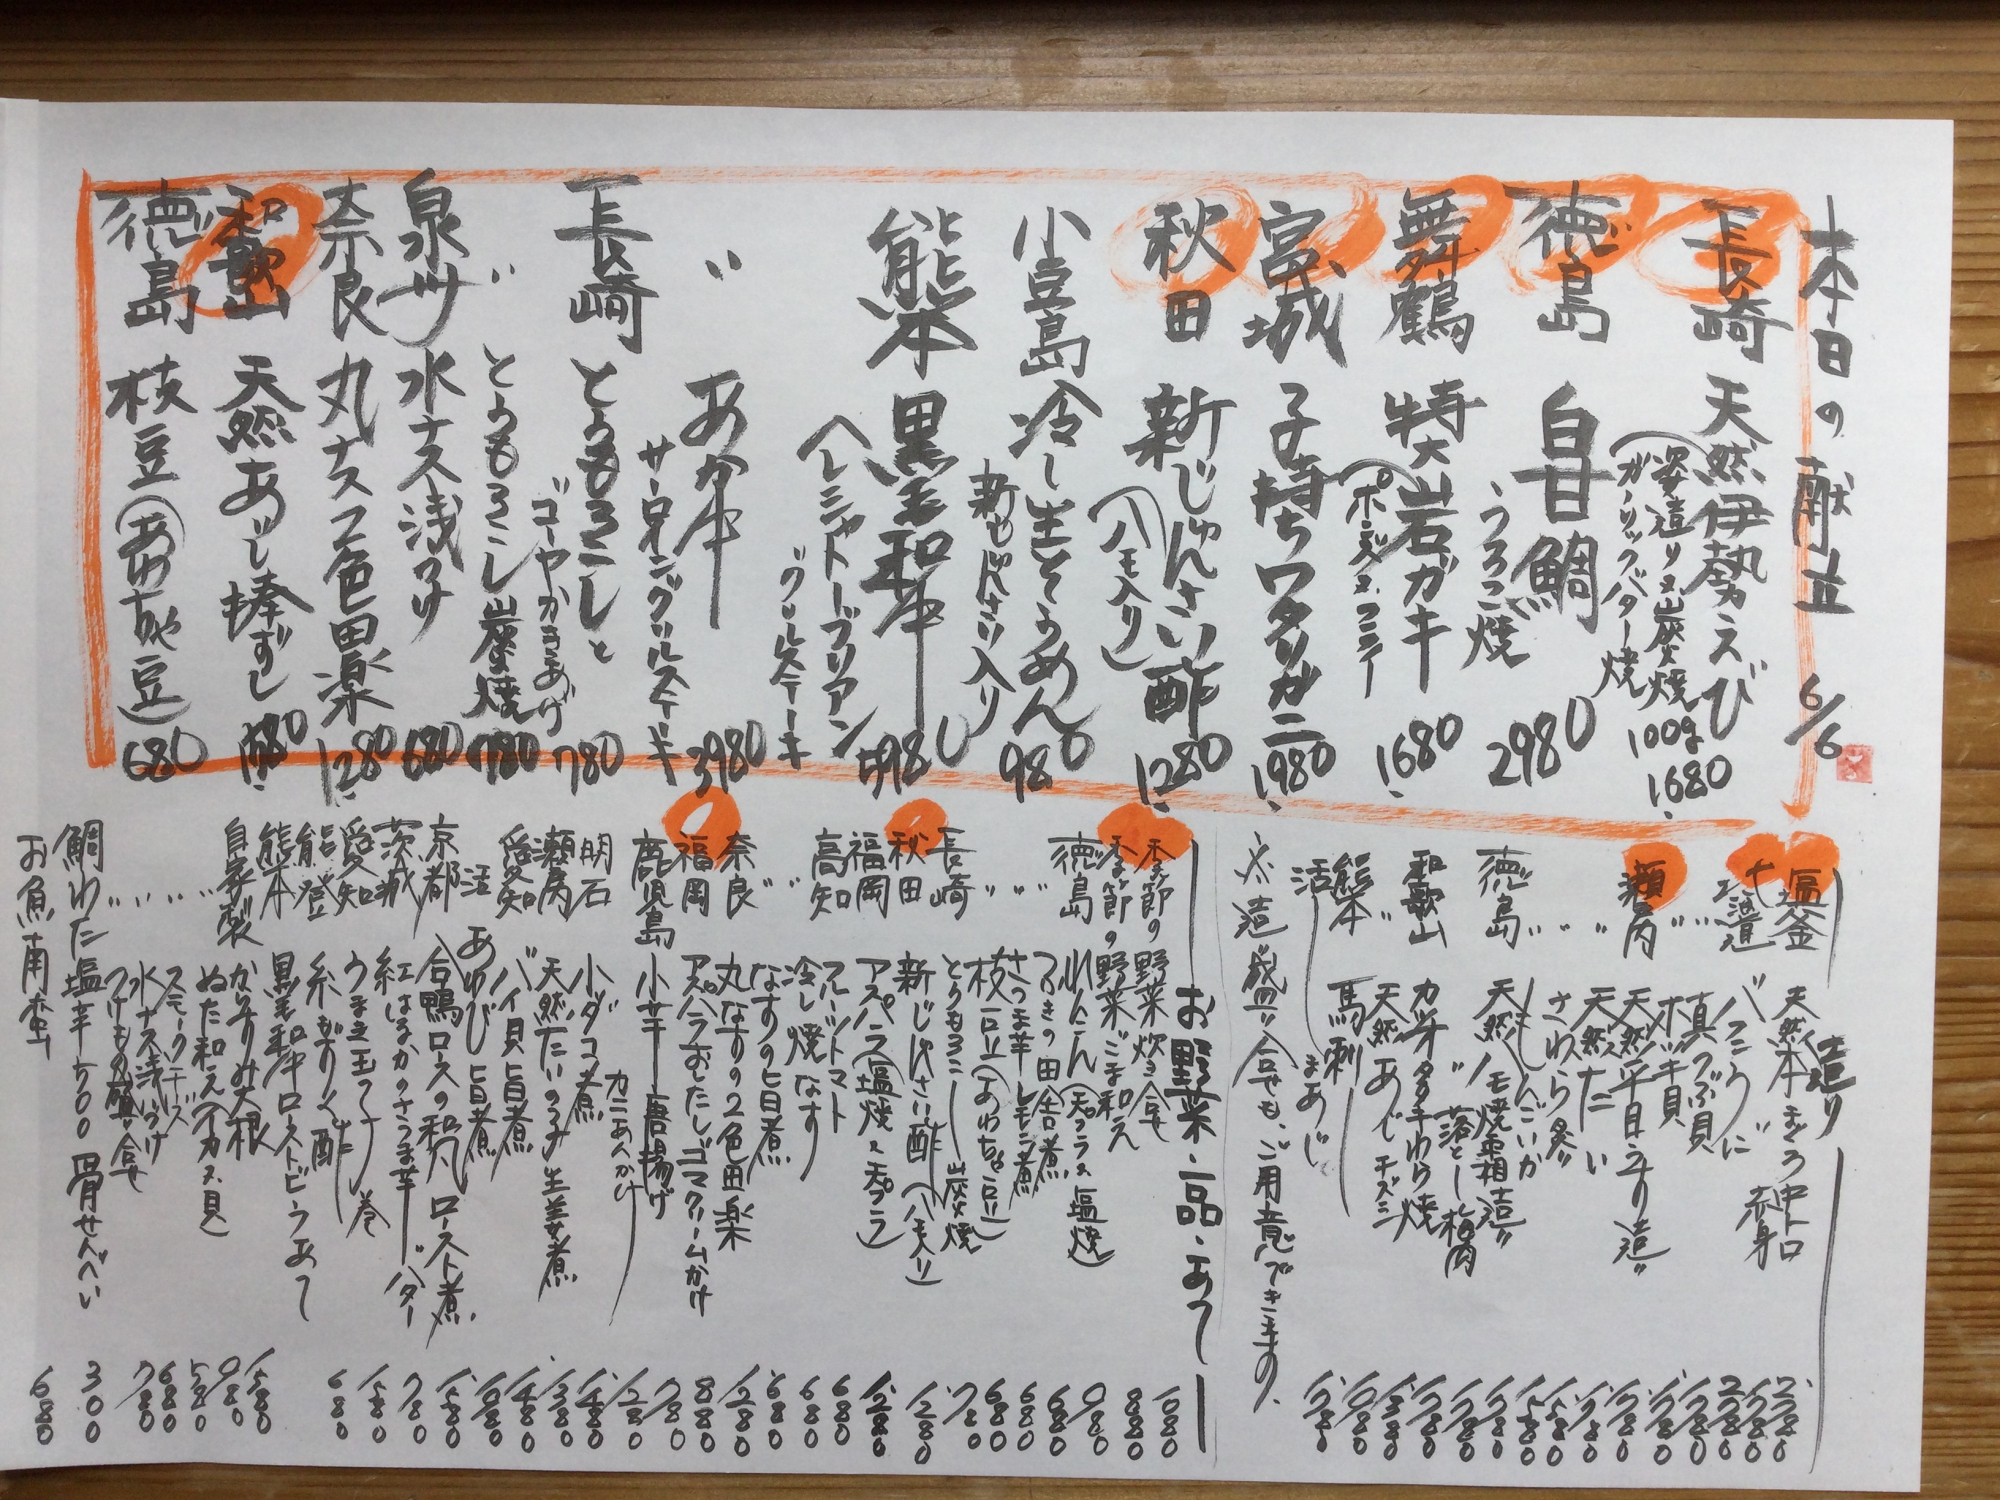 本日の献立 6/6
長崎 天然伊勢えび
(姿造り又炭焼 100g 1680
ガーリックバター焼
徳島 白甘鯛 2980
うろこ焼
舞鶴 特大岩ガキ 1680
(ポン酢又
宮城 子持ちワタリガニ 1980
秋田 新じゅんさい酢 1280
(ハモ入り)
小豆島 冷し生そうめん 980
新じゅんさい入り
熊本 黒毛和牛
(シャトーブリアン
グリルステーキ
〃 あか牛 3980
サーロイングリルステーキ
長崎 とうもろこしと 780
ゴーヤかきあげ
〃 とうもろこし炭焼 780
泉州 水ナス浅づけ 680
奈良 丸ナス2色田楽 1280
和歌山 天然あじ棒ずし
徳島 枝豆(あわちゃ豆) 680
造り
塩釜 天然本まぐろ中トロ 2780
赤身 1780
北海道 バフンうに 2780
〃 真つぶ貝 1780
〃 ホッキ貝 1780
瀬戸内 天然平目うす造り 1780
〃 天然たい 1780
〃 さわら炙り 1580
〃 しもしんこいか 1580
徳島 天然ハモ焼霜造り 1780
〃 落とし梅肉 1780
和歌山 カツオタタキわら焼 1780
〃 天然あじ 1380
熊本 馬刺 1080
活 しまあじ 1780
※造り盛り合せも、ご用意できます。
お野菜・一品・あて
季節の野菜炊き合せ 1080
季節の野菜ごま和え 880
徳島 れんこん(天プラ又塩焼) 980
〃 ふきの田舎煮 680
〃 さつま芋レモン煮 680
〃 枝豆(あわちゃ豆) 680
長崎 とうもろこし炭焼 780
秋田 新じゅんさい酢(ハモ入り) 1280
福岡 アスパラ(塩焼又天プラ) 1280
高知 フルーツトマト 680
〃 冷し焼なす 680
〃 なすの旨煮 680
奈良 丸なすの2色田楽 1280
福岡 アスパラおひたしゴマクリームかけ 880
鹿児島 小芋唐揚げ 780
カニあんかけ 1280
明石 小ダコ煮 1480
瀬戸内 天然たいのうみ生姜煮 1380
愛知 バイ貝旨煮 1480
活 あわび旨煮 1080
京都 合鴨ロースの和風ロースト煮 1580
茨城 紅はるかのさつま芋バター 780
愛知 うまき玉子巻 1580
能登 糸もずく酢 680
熊本 黒毛和牛ローストビーフあて 1580
自家製 かつみ大根 980
〃 ぬた和え(イカ又貝) 580
〃 スモークチーズ 680
〃 水ナス浅づけ 780
〃 つけもの盛り合せ
鯛わた塩辛500 骨せんべい 300
お魚南蛮 680